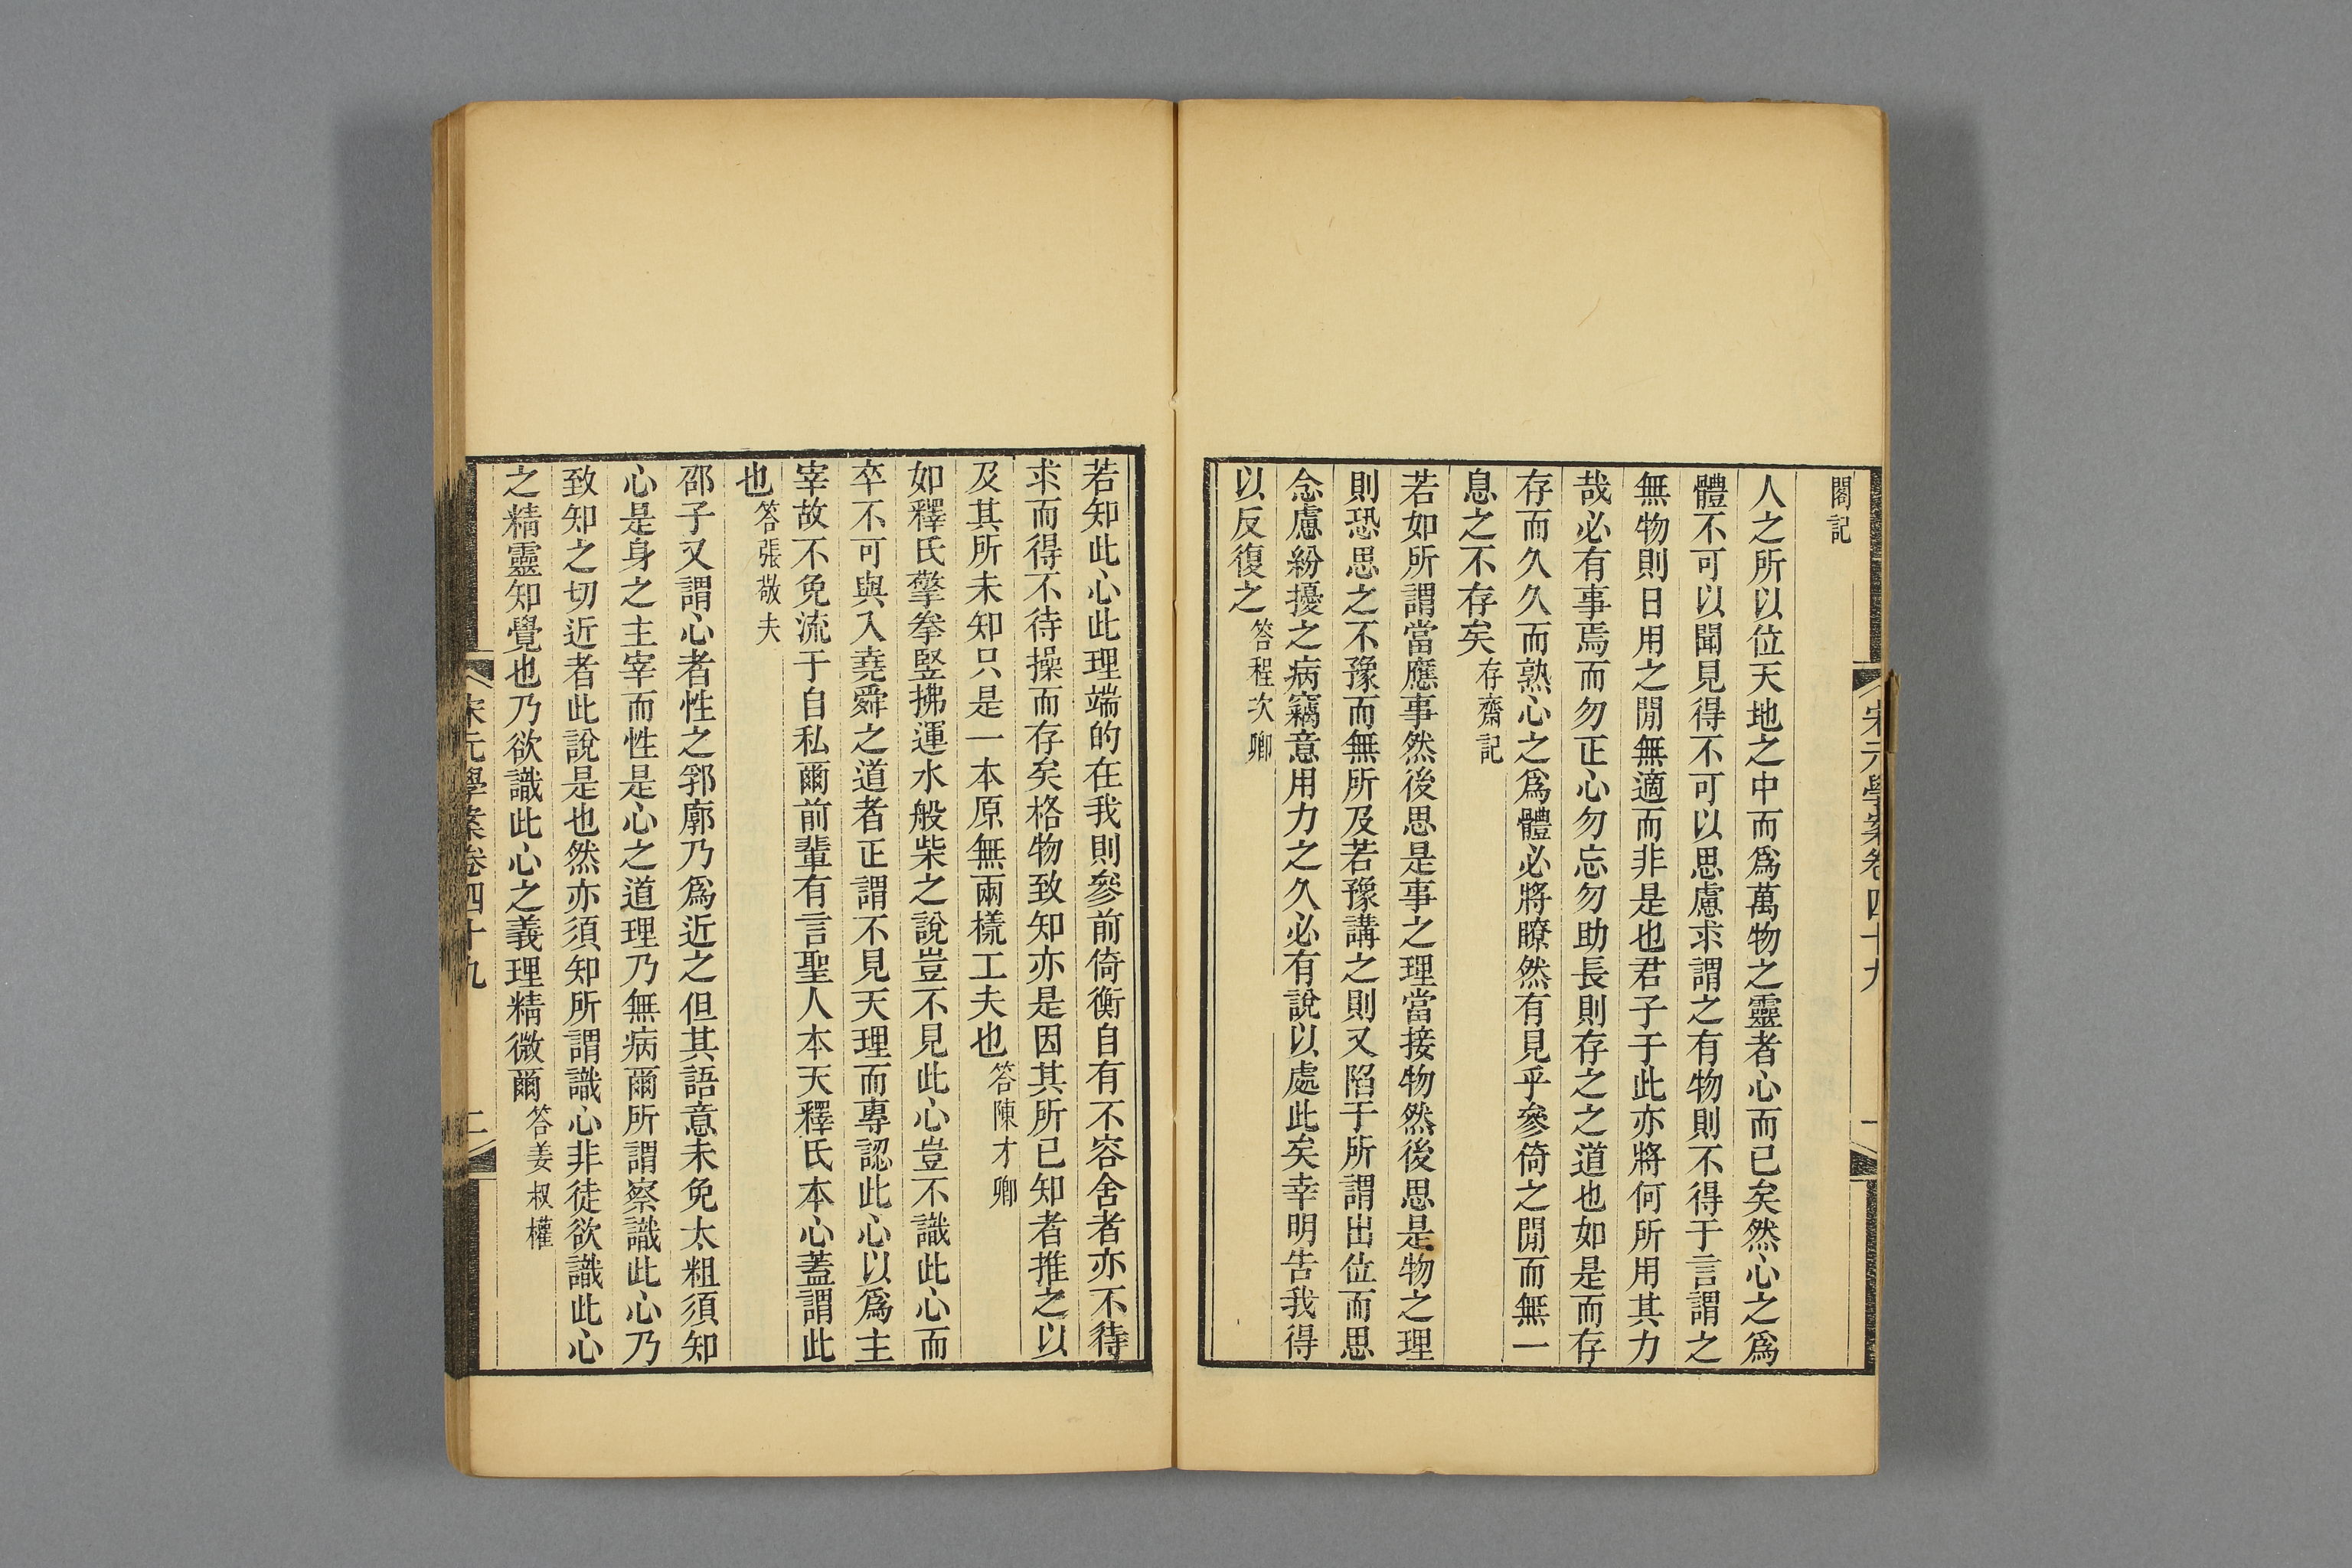 宋元學案卷四十九
一
閣記
人之所以位天地之中而爲萬物之靈者心而已矣然心之爲
體不可以聞見得不可以思慮求謂之有物則不得于言謂之
無物則日用之閒無適而非是也君子于此亦將何所用其力
哉必有事焉而勿正心勿忘勿助長則存之之道也如是而存
存而久久而熟心之爲體必將瞭然有見乎參倚之閒而無一
息之不存矣存齋記
若如所謂當應事然後思是事之理當接物然後思是物之理
則恐思之不豫而無所及若豫講之則又陷于所謂出位而思
念慮紛擾之病竊意用力之久必有說以處此矣幸明告我得
以反復之答程次卿
若知此心此理端的在我則參前倚衡自有不容舍者亦不待
求而得不待操而存矣格物致知亦是因其所已知者推之以
及其所未知只是一本原無兩樣工夫也答陳才卿
如釋氏擎拳豎拂運水般柴之說豈不見此心豈不識此心而
卒不可與入堯舜之道者正謂不見天理而專認此心以爲主
宰故不免流于自私爾前輩有言聖人本天釋氏本心蓋謂此
也答張敬夫
邵子又謂心者性之郛廓乃爲近之但其語意未免太粗須知
心是身之主宰而性是心之道理乃無病爾所謂察識此心乃
致知之切近者此說是也然亦須知所謂識心非徒欲識此心
之精靈知覺也乃欲識此心之義理精微爾答姜叔權
宋元學案卷四十九
二